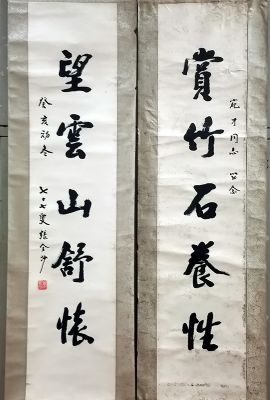 賞竹石養性
宛才同志 安念
望雲山舒懷
癸亥初冬
七十七叟張金